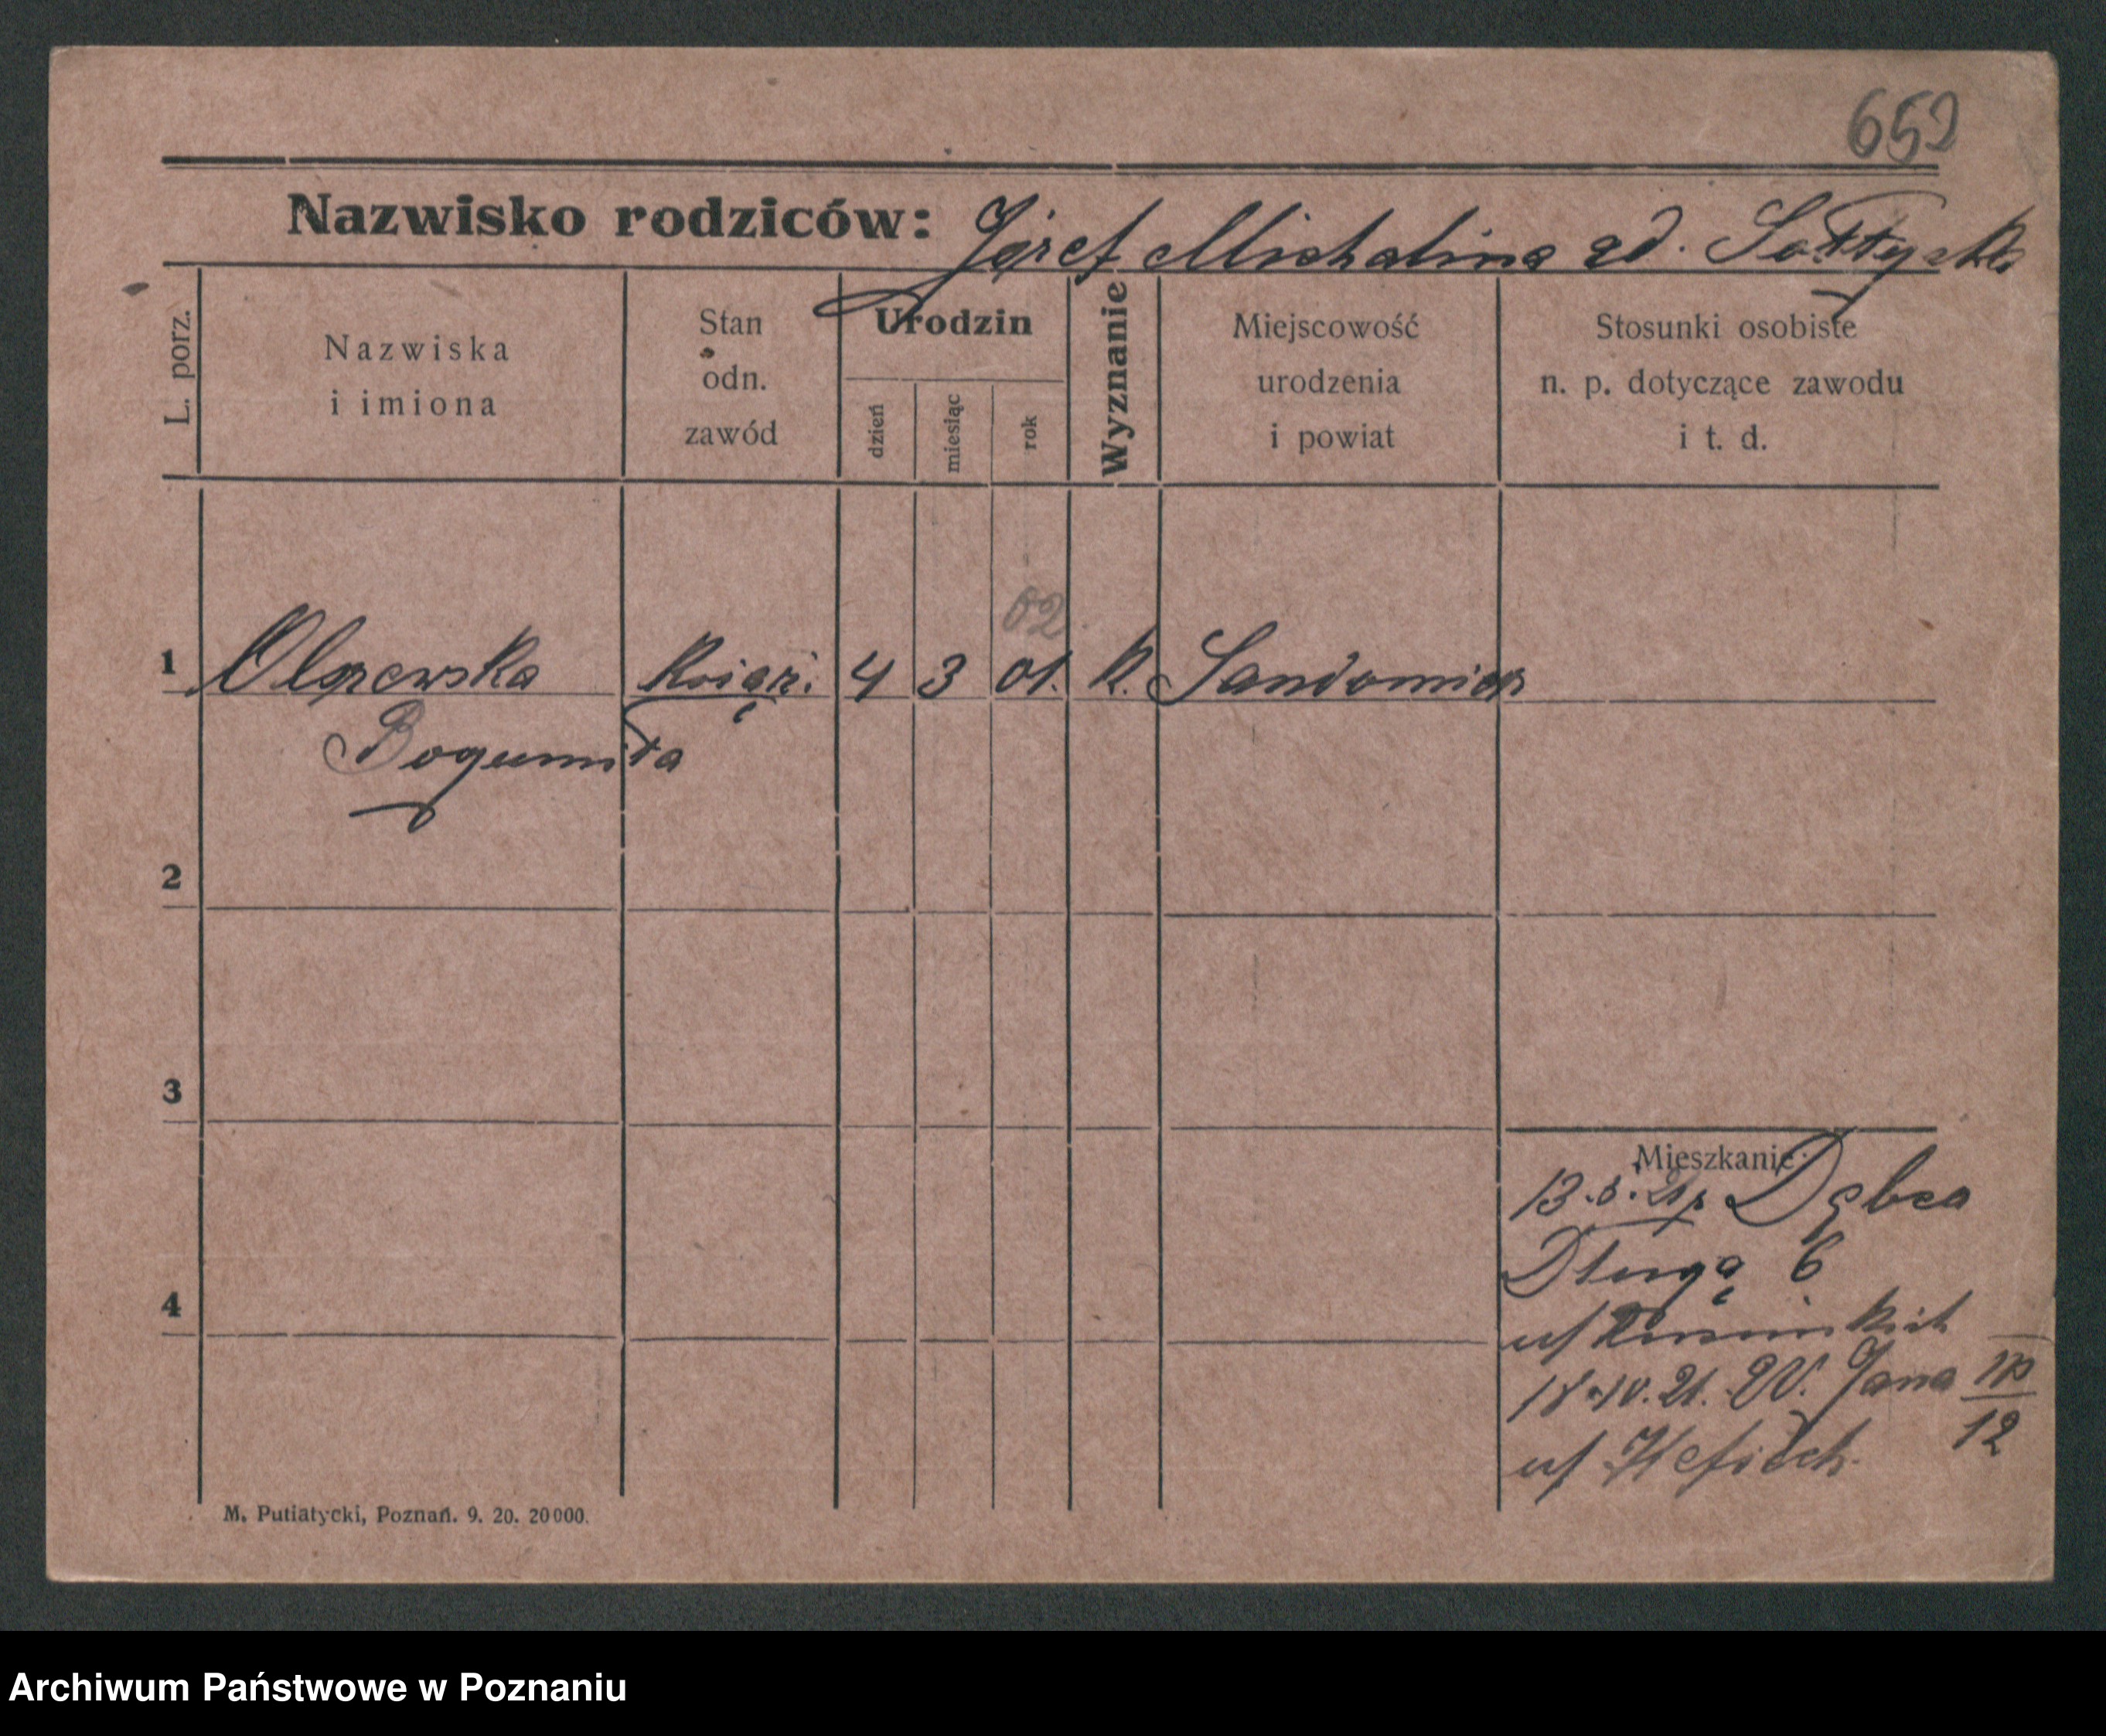 652
Nazwisko rodziców: Józef Michalina zd. Sołtyk
L. porz.
Nazwiska
i imiona
Stan
odn.
zawód
Urodzin
dzień
miesiąc
rok
Wyznanie
Miejscowość
urodzenia
i powiat
Stosunki osobiste
n. p. dotyczące zawodu
i t. d.
02
1 Olszewska Książ. 4 3 01. k. Sandomierz
Bogumiła
2
3
4
Mieszkanie:
13. 21 Dębca
Długa 6
u/
18 IV. 21. W. Jana 10/12
u/
M. Putiatycki, Poznań. 9. 20. 20000.
Archiwum Państwowe w Poznaniu